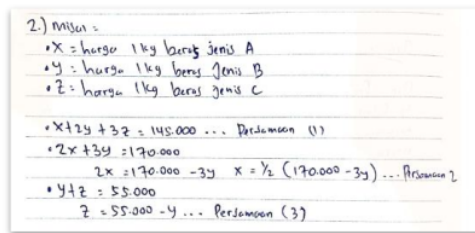 2.) Misal :
• X = harga 1 kg beras jenis A
• y : harga 1 kg beras Jenis B
• Z : harga 1 kg beras jenis C
• X + 2y + 3z = 145.000 ... Persamaan (1)
• 2x + 3y = 170.000
2x = 170.000 - 3y x = 1/2 (170.000 - 3y) ... Persamaan 2
• y + z = 55.000
z = 55.000 - y ... Persamaan (3)